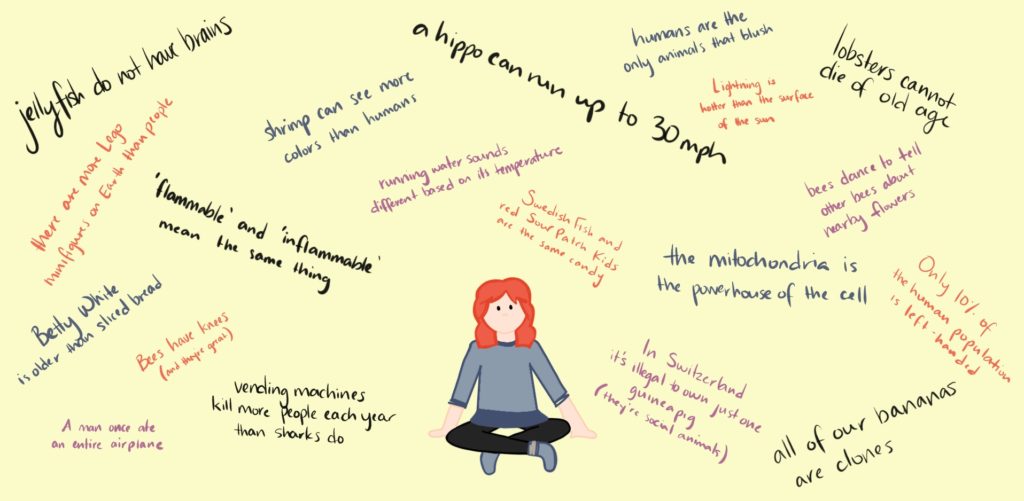 jellyfish do not have brains
a hippo can run up to 30 mph
humans are the
only animals that blush
lobsters cannot
die of old age
Lightning is
hotter than the surface
of the sun
shrimp can see more
colors than humans
there are more Lego
minifigures on Earth than people
running water sounds
different based on its temperature
bees dance to tell
other bees about
nearby flowers
'flammable' and 'inflammable'
mean the same thing
Swedish Fish and
red Sour Patch Kids
are the same candy
the mitochondria is
the powerhouse of the cell
Only 10% of
the human population
is left-handed
Betty White
is older than sliced bread
Bees have knees
(and they're great)
In Switzerland
it's illegal to own just one
guinea pig
(they're social animals)
vending machines
kill more people each year
than sharks do
A man once ate
an entire airplane
all of our bananas
are clones